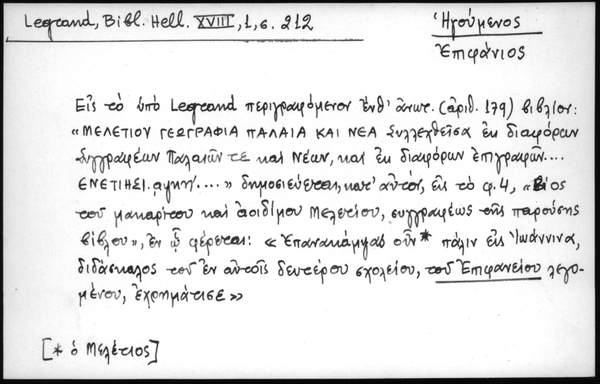 Legrand, Bibl. Hell. XVIII, 1, σ. 212
Ἡγούμενος
Ἐπιφάνιος
Εἰς τὸ ὑπὸ Legrand περιγραφόμενον ἐνθ' ἀνωτ. (ἀριθ. 179) βιβλίον:
«ΜΕΛΕΤΙΟΥ ΓΕΩΓΡΑΦΙΑ ΠΑΛΑΙΑ ΚΑΙ ΝΕΑ Συλλεχθεῖσα ἐκ διαφόρων
Συγγραφέων Παλαιῶν τε καὶ Νέων, καὶ ἐκ διαφόρων ἐπιγραφῶν....
ΕΝΕΤΙΗΣΙ. αψκη'....» δημοσιεύεται, κατ' αὐτόν, εἰς τὸ φ. 4, «Βίος
τοῦ μακαρίτου καὶ ἀοιδίμου Μελετίου, συγγραφέως τῆς παρούσης
βίβλου», ἐν ᾧ φέρεται: «Ἐπανακάμψας οὖν* πάλιν εἰς Ἰωάννινα,
διδάσκαλος τοῦ ἐν αὐτοῖς δευτέρου σχολείου, τοῦ Ἐπιφανείου λεγο-
μένου, ἐχρημάτισε»
[* ὁ Μελέτιος]